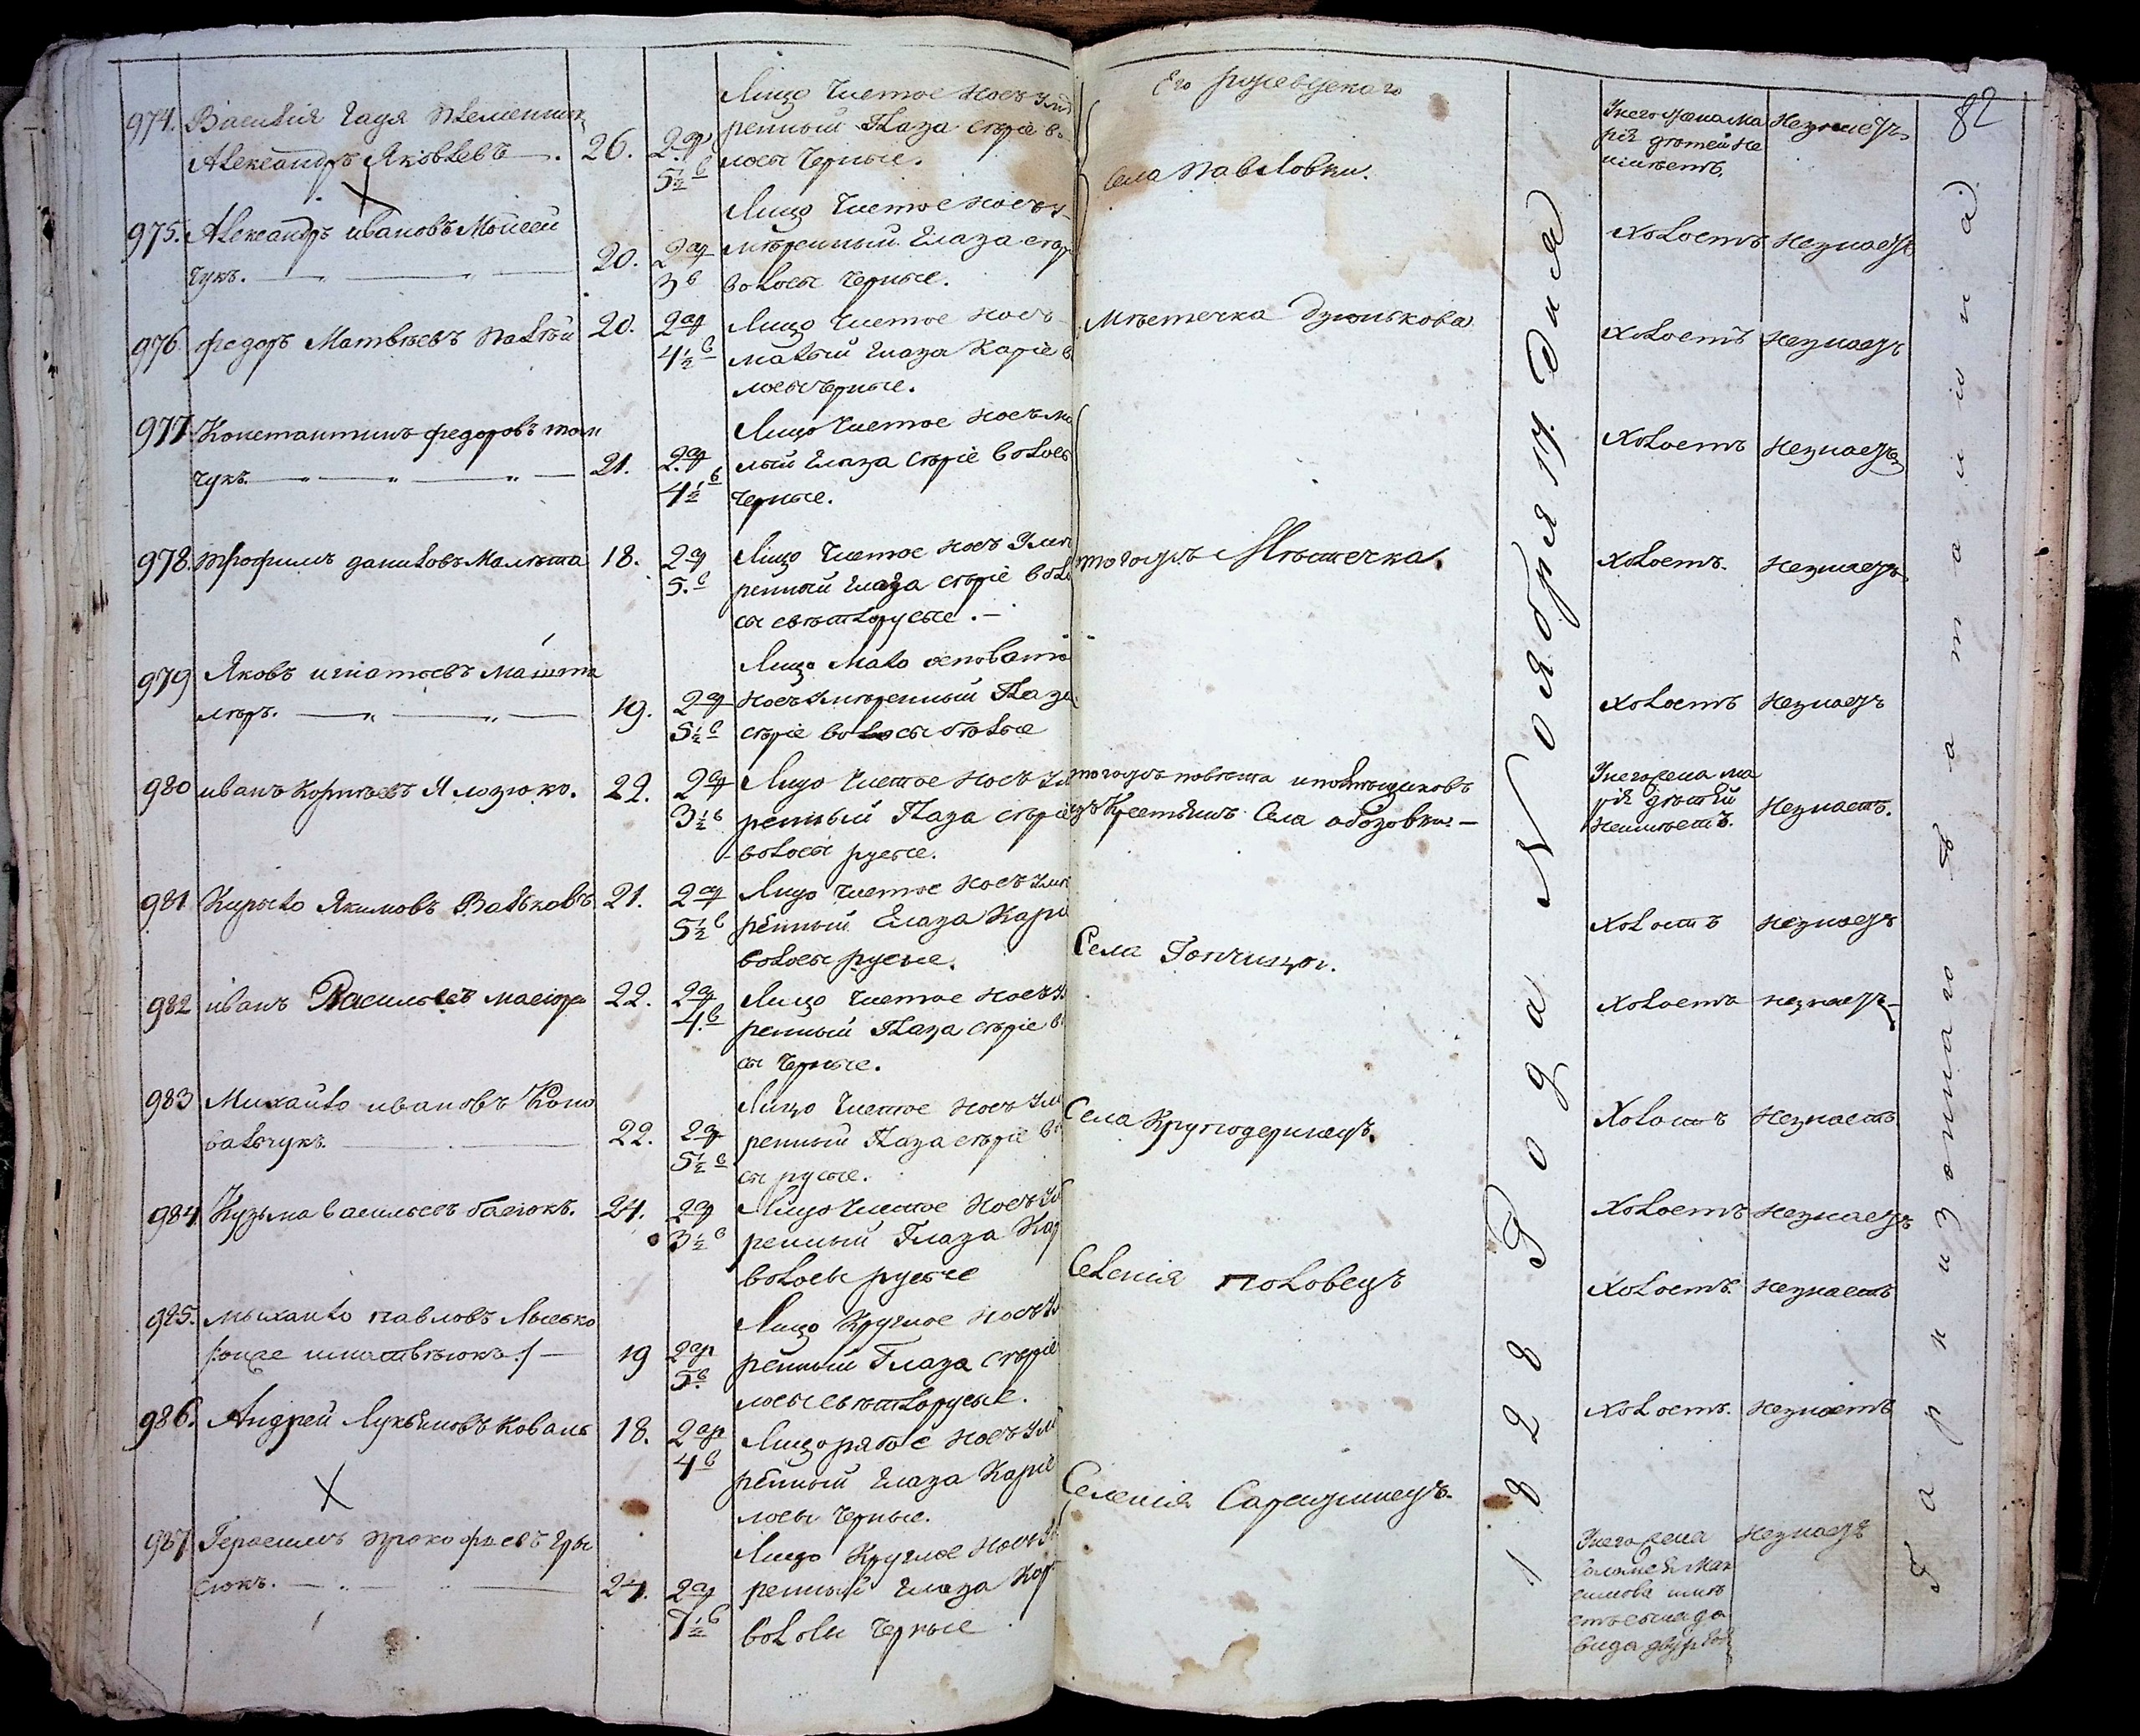 82
Его
974. Василия Гаця племенник
Александръ Яковлевъ 26. 2 ар 5½ в
Лицо чистое носъ умѣ
ренный Глаза сѣріе во
лосы черные.
села Павловки.
У него жена Ма
рія дѣтей не
имѣетъ.
Незнаетъ
975. Александръ ивановъ Мойсей
чукъ. 20. 2 ар 3 в
Лицо чистое носъ у
мѣренный Глаза сѣр
волосы черные.
холостъ незнаетъ
976 федоръ Матвѣевъ 20. 2 ар 4½ в
Лицо чистое носъ
малый глаза каріе в
лосы черные.
Мѣстечка Дзюнькова
холостъ незнаетъ
977 Константинъ федоровъ
чукъ. 21. 2 ар 4½ в
Лицо чистое носъ ма
лый глаза сѣріе волосы
черные.
холостъ незнаетъ
978. трофимъ даниловъ 18. 2 ар 5. в
Лицо чистое носъ умѣ
ренный глаза сѣріе воло
сы свѣтлорусые.
тогожъ Мѣстечка.
холостъ. незнаетъ
979 Яковъ игнатьевъ
19. 2 ар 5½ в
Лицо мало
носъ умѣренный Глаза
сѣріе волосы бѣлые
холостъ незнаетъ
980 иванъ Корнѣевъ 22. 2 ар 3½ в
Лицо чистое носъ умѣ
ренный Глаза сѣріе
волосы русые.
тогожъ повѣта
изъ Крестьянъ Села обозовки.
У него жена Ма
рія дѣтей
неимѣетъ.
Незнаетъ.
981 Кирыло Якимовъ Вальковъ. 21. 2 ар 5½ в
Лицо чистое носъ умѣ
ренный Глаза Карі
волосы русые.
Села
холостъ незнаетъ
982 иванъ Васильевъ 22. 2 ар 4. в
Лицо чистое носъ у
ренный Глаза сѣріе в
сы черные.
холостъ незнаетъ
983 Михайло ивановъ Коно
вальчукъ. 22. 2 ар 5½ в
Лицо чистое носъ умѣ
ренный Глаза сѣріе в
сы русые.
Села
холостъ незнаетъ
984 Кузьма васильевъ басюкъ. 24. 2 ар 3½ в
Лицо чистое носъ умѣ
ренный Глаза Кар
волосы русые
Селенія половецъ
холостъ незнаетъ
985. михайло павловъ Лысько
19 2 ар 5. в
Лицо Круглое носъ у
ренный Глаза сѣріе
лосы свѣтлорусые.
холостъ. незнаетъ
986. Андрей Лукьяновъ Коваль 18. 2 ар 4 в
Лицо рябое носъ умѣ
ренный Глаза Каріе
лосы черные.
Селенія
холостъ. незнаетъ
987 Герасимъ прокофьевъ
сюкъ. 24. 2 ар 7½ в
Лицо Круглое носъ у
ренный Глаза Кар
волосы черные
У него жена
незнаетъ
1828 Года Ноября 17 Дня
Гарнизоннаго баталиона